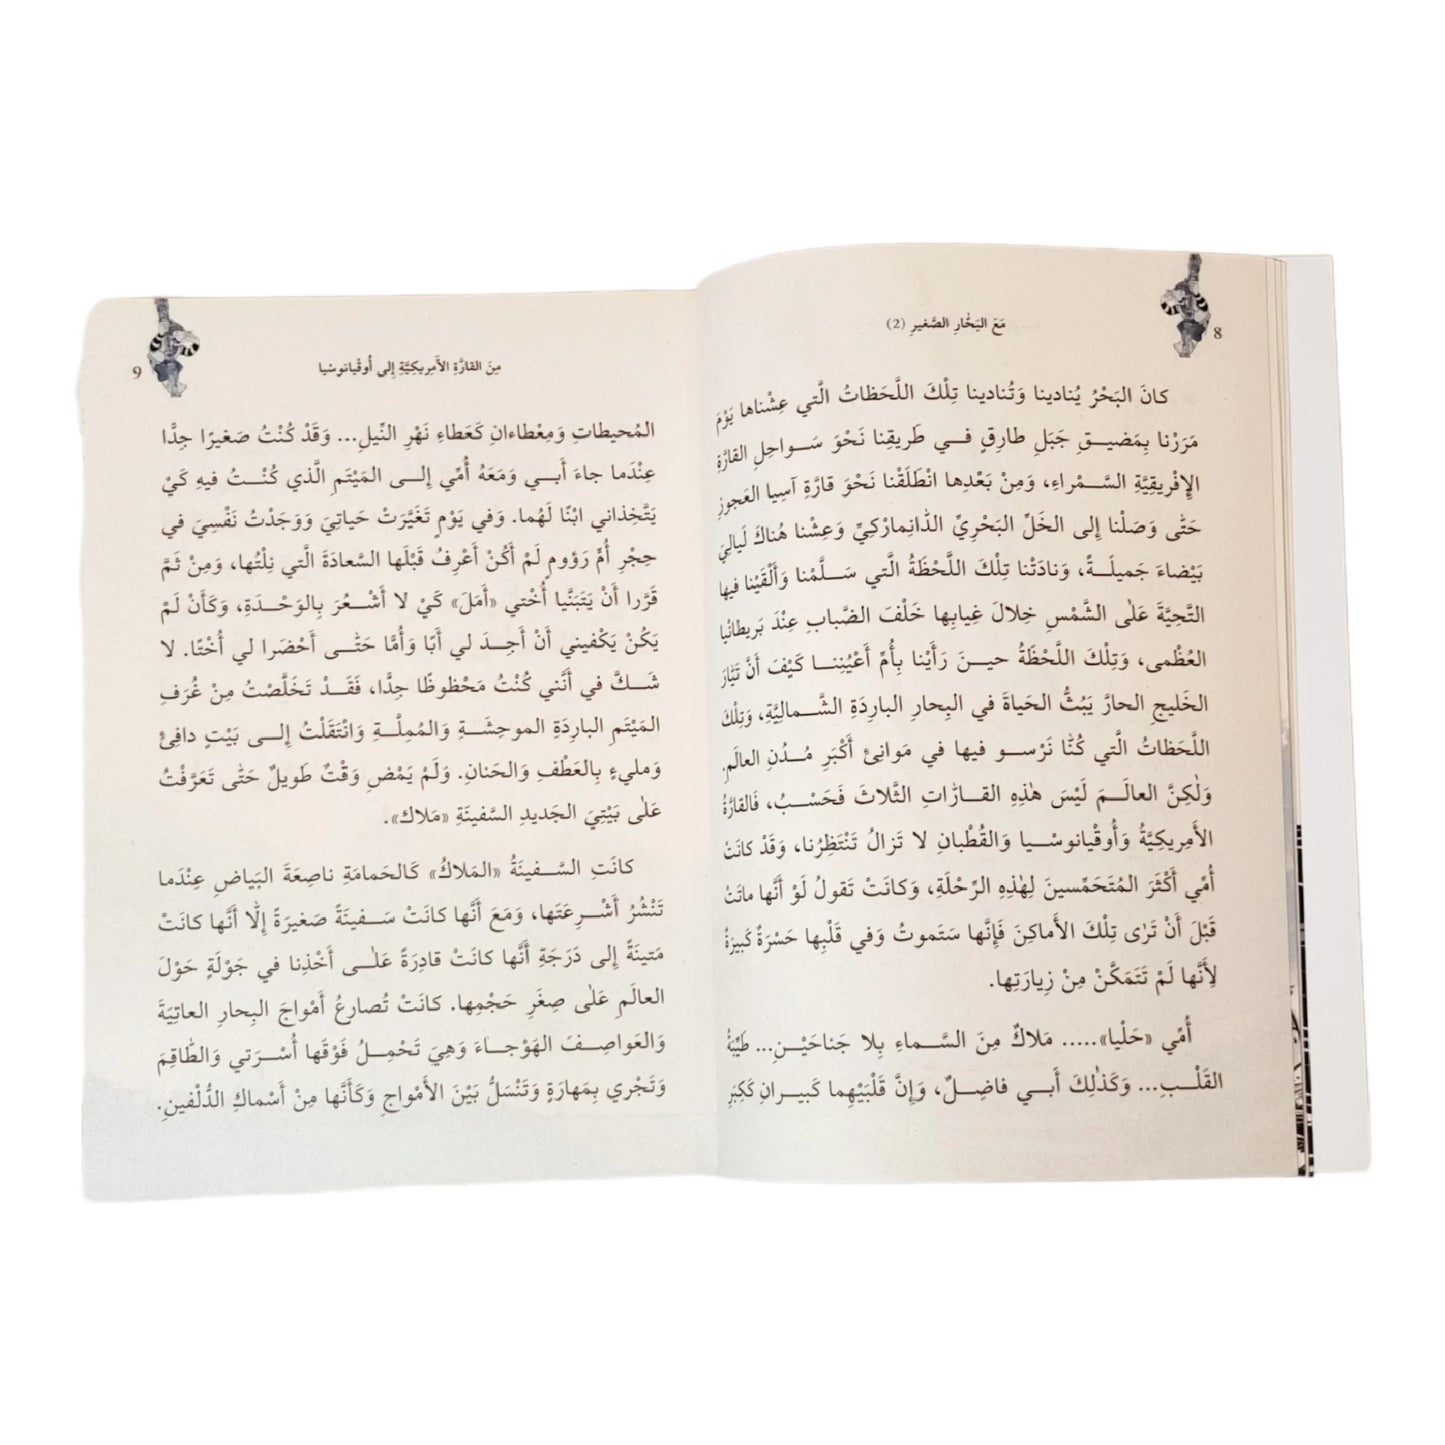 8
مَعَ البَحّارِ الصَّغيرِ (2)
كانَ البَحْرُ يُنادينا وَتُنادينا تِلْكَ اللَّحَظاتُ الَّتي عِشْناها يَوْمَ
مَرَرْنا بِمَضيـقِ جَبَلِ طارِقٍ فـي طَريقِنا نَحْوَ سَـواحِلِ القارَّةِ
الإِفْريقِيَّةِ السَّـمْراءِ، وَمِنْ بَعْدِها انْطَلَقْنا نَحْوَ قارَّةِ آسِيا العَجوزِ
حَتّى وَصَلْنا إِلى الخَلِّ البَحْرِيِّ الدّانِمارْكِيِّ وَعِشْنا هُناكَ لَيالِيَ
بَيْضاءَ جَميلَـةً، وَنادَتْنا تِلْكَ اللَّحْظَةُ الَّتي سَـلَّمْنا وَأَلْقَيْنا فيها
التَّحِيَّةَ عَلى الشَّمْسِ خِلالَ غِيابِها خَلْفَ الضَّبابِ عِنْدَ بَريطانْيا
العُظْمى، وَتِلْكَ اللَّحْظَةُ حيـنَ رَأَيْنا بِأُمِّ أَعْيُنِنـا كَيْفَ أَنَّ تَيّارَ
الخَليجِ الحارَّ يَبُثُّ الحَياةَ في البِحارِ البارِدَةِ الشَّـمالِيَّةِ، وَتِلْكَ
اللَّحَظاتُ الَّتي كُنّا نَرْسـو فيها في مَوانِئِ أَكْبَرِ مُـدُنِ العالَمِ.
وَلٰكِنَّ العالَـمَ لَيْسَ هٰذِهِ القـارّاتِ الثَّلاثَ فَحَسْبُ، فَالقارَّةُ
الأَمِريكِيَّةُ وَأُوقْيانوسْـيا وَالقُطْبانِ لا تَزالُ تَنْتَظِرُنا، وَقَدْ كانَتْ
أُمّي أَكْثَرَ المُتَحَمِّسينَ لِهٰذِهِ الرِّحْلَةِ، وَكانَتْ تَقولُ لَوْ أَنَّها ماتَتْ
قَبْلَ أَنْ تَرى تِلْكَ الأَماكِنَ فَإِنَّها سَتَموتُ وَفي قَلْبِها حَسْرَةٌ كَبيرَةٌ
لِأَنَّها لَمْ تَتَمَكَّنْ مِنْ زِيارَتِها.
أُمّي «حَلْيا»..... مَلاكٌ مِنَ السَّـماءِ بِلا جَناحَيْـنِ... طَيِّبَةُ
القَلْـبِ... وَكَذٰلِكَ أَبـي فاضِـلٌ، وَإِنَّ قَلْبَيْهِما كَبيـرانِ كَكِبَرِ
9
مِنَ القارَّةِ الأَمِريكِيَّةِ إِلى أُوقْيانوسْيا
المُحيطاتِ وَمِعْطاءانِ كَعَطاءِ نَهْرِ النّيلِ... وَقَدْ كُنْتُ صَغيرًا جِدًّا
عِنْدَما جاءَ أَبـي وَمَعَهُ أُمّي إِلـى المَيْتَمِ الَّذي كُنْـتُ فيهِ كَيْ
يَتَّخِذاني ابْنًا لَهُما. وَفي يَوْمٍ تَغَيَّرَتْ حَياتِيَ وَوَجَدْتُ نَفْسِيَ في
حِجْرِ أُمٍّ رَؤومٍ لَمْ أَكُنْ أَعْرِفُ قَبْلَها السَّعادَةَ الَّتي نِلْتُها، وَمِنْ ثَمَّ
قَرَّرا أَنْ يَتَبَنَّيا أُخْتي «أَمَلَ» كَيْ لا أَشْـعُرَ بِالوَحْـدَةِ، وَكَأَنْ لَمْ
يَكُنْ يَكْفيني أَنْ أَجِـدَ لي أَبًا وَأُمًّا حَتّـى أَحْضَرا لي أُخْتًا. لا
شَـكَّ في أَنَّني كُنْتُ مَحْظوظًا جِدًّا، فَقَـدْ تَخَلَّصْتُ مِنْ غُرَفِ
المَيْتَمِ البارِدَةِ الموحِشَـةِ وَالمُمِلَّـةِ وَانْتَقَلْتُ إِلـى بَيْتٍ دافِئٍ
وَمليءٍ بِالعَطْفِ وَالحَنانِ. وَلَمْ يَمْضِ وَقْتٌ طَويلٌ حَتّى تَعَرَّفْتُ
عَلى بَيْتِيَ الجَديدِ السَّفينَةِ «مَلاك».
كانَتِ السَّـفينَةُ «المَلاكُ» كَالحَمامَةِ ناصِعَةَ البَياضِ عِنْدَما
تَنْشُرُ أَشْـرِعَتَها، وَمَعَ أَنَّها كانَتْ سَـفينَةً صَغيرَةً إِلّا أَنَّها كانَتْ
مَتينَةً إِلى دَرَجَةِ أَنَّها كانَتْ قادِرَةً عَلـى أَخْذِنا في جَوْلَةٍ حَوْلَ
العالَمِ عَلى صِغَرِ حَجْمِها. كانَتْ تُصارِعُ أَمْواجَ البِحارِ العاتِيَةَ
وَالعَواصِـفَ الهَوْجـاءَ وَهِيَ تَحْمِـلُ فَوْقَها أُسْـرَتي وَالطّاقِمَ
وَتَجْري بِمَهارَةٍ وَتَنْسَلُّ بَيْنَ الأَمْواجِ وَكَأَنَّها مِنْ أَسْماكِ الدُّلْفينِ.